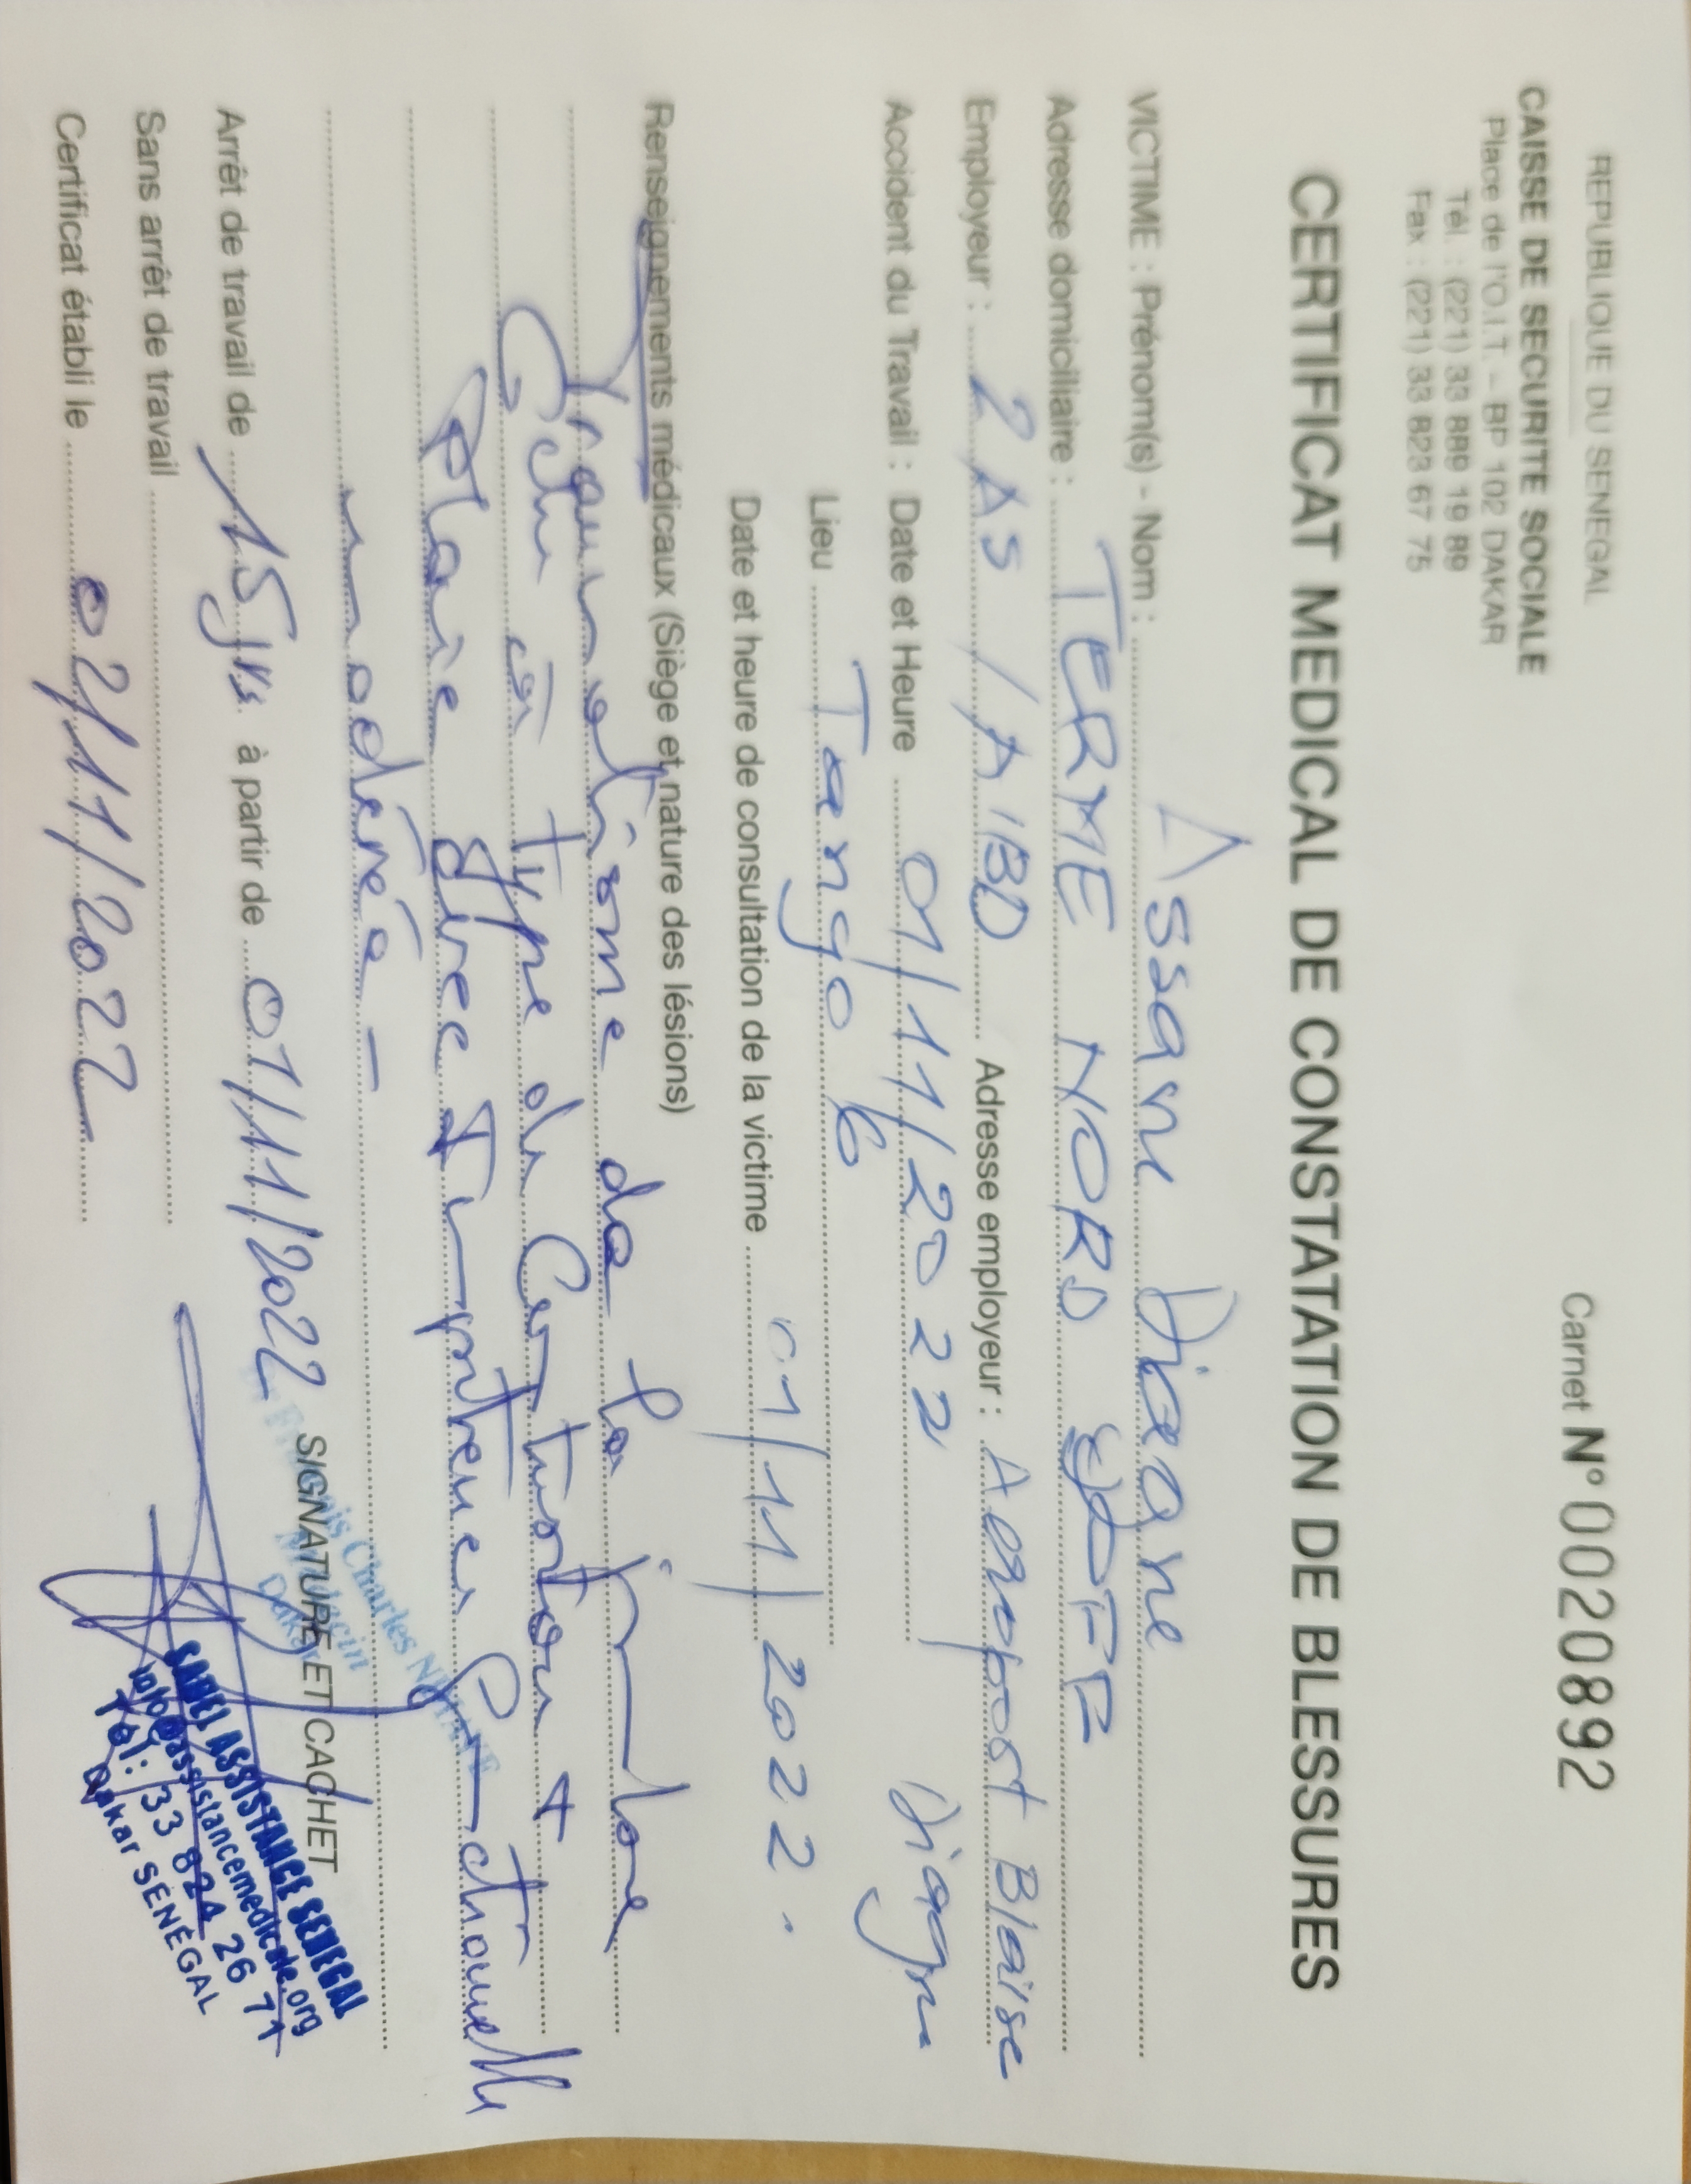 REPUBLIQUE DU SENEGAL
CAISSE DE SECURITE SOCIALE
Place de l'O.I.T. - BP 102 DAKAR
Tél. : (221) 33 889 19 89
Fax : (221) 33 823 67 75
Carnet N° 0020892
CERTIFICAT MEDICAL DE CONSTATATION DE BLESSURES
VICTIME : Prénom(s) - Nom : Assane Diagne
Adresse domiciliaire : TERME NORD
Employeur : 2AS / AIBD Adresse employeur : Aeroport Blaise Diagne
Accident du Travail : Date et Heure 01/11/2022
Lieu Tango 6
Date et heure de consultation de la victime 01/11/2022.
Renseignements médicaux (Siège et nature des lésions)
Traumatisme de la jambe
à type de Contusion +
Plaie avec Impotence fonctionnelle
modérée -
Arrêt de travail de 15 jrs à partir de 01/11/2022
SIGNATURE ET CACHET
Sans arrêt de travail
Certificat établi le 02/11/2022
Charles
Médecin
Dakar
SAHEL ASSISTANCE SENEGAL
info@assistancemedicale.org
Tél : 33 824 26 71
Dakar SÉNÉGAL